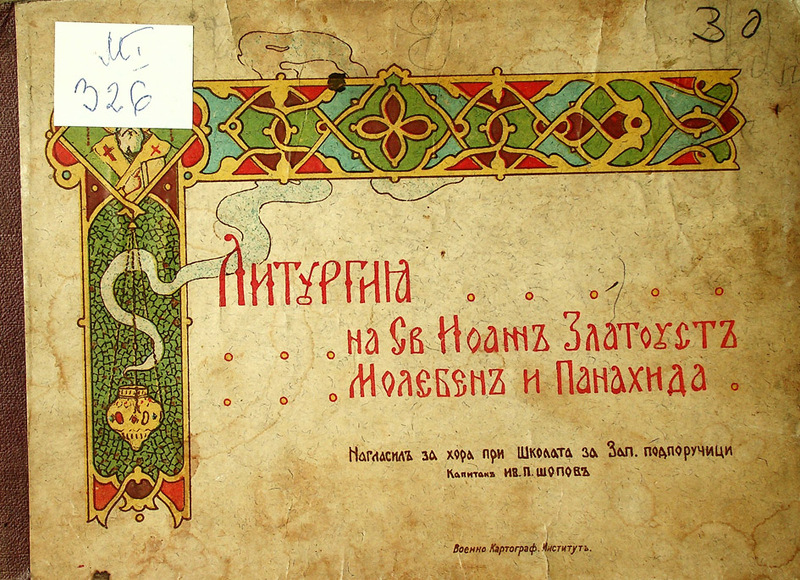 МІ
326
30
Литургия
на Св Иоаннъ Златоустъ
Молебенъ и Панахида .
Нагласилъ за хора при Школата за Зап. подпоручици
Капитанъ ИВ. П. ШОПОВЪ
Военно Картограф. Институтъ.